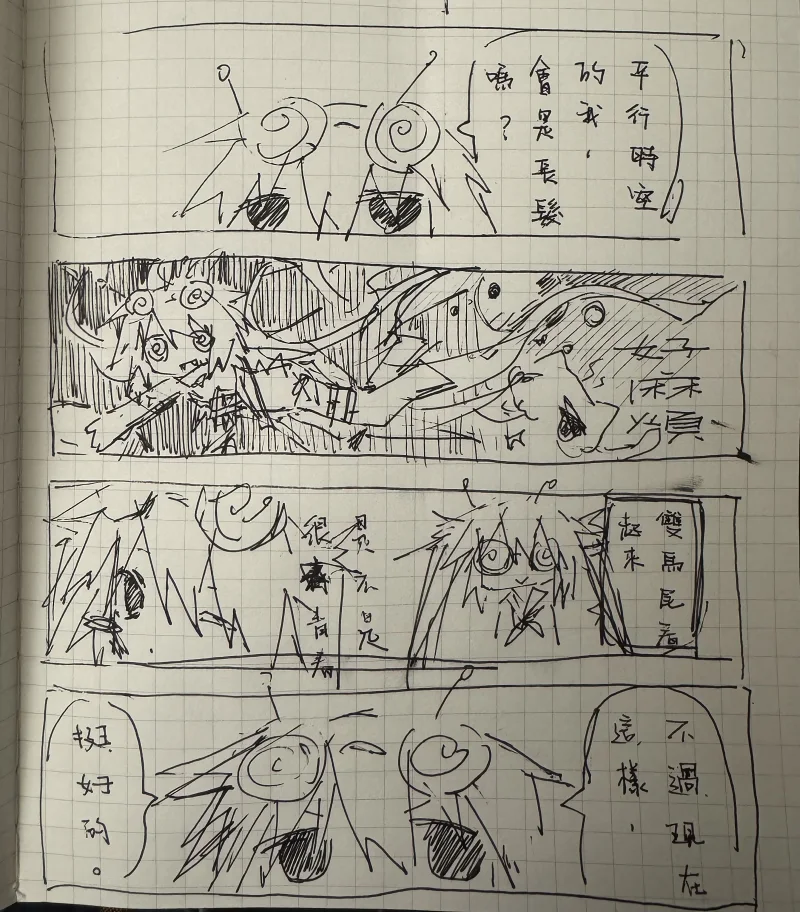 平行時空
的我，
會是長髮
嗎？
好麻煩
雙馬尾看
起來
是不是
很青春
不過現在
這樣，
挺好的。